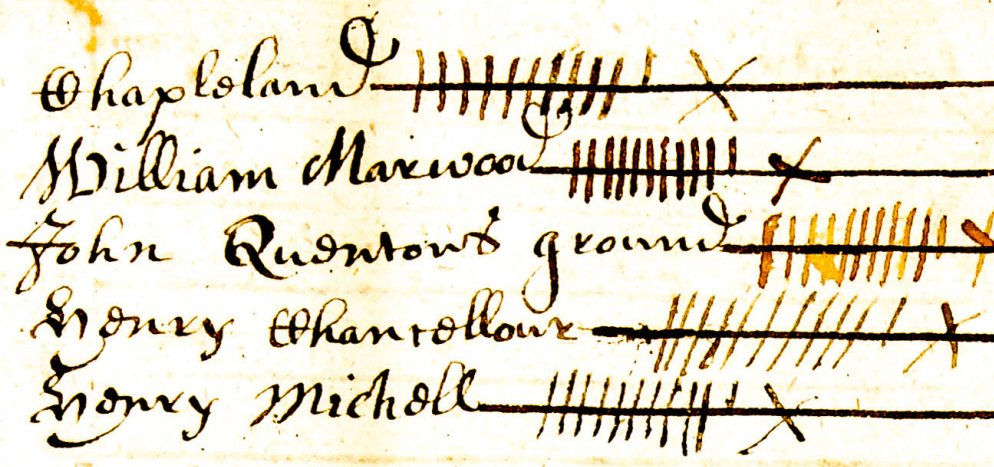 Chapleland
William Marwood
John Quentons ground
Henry Chancellour
Henry Michell